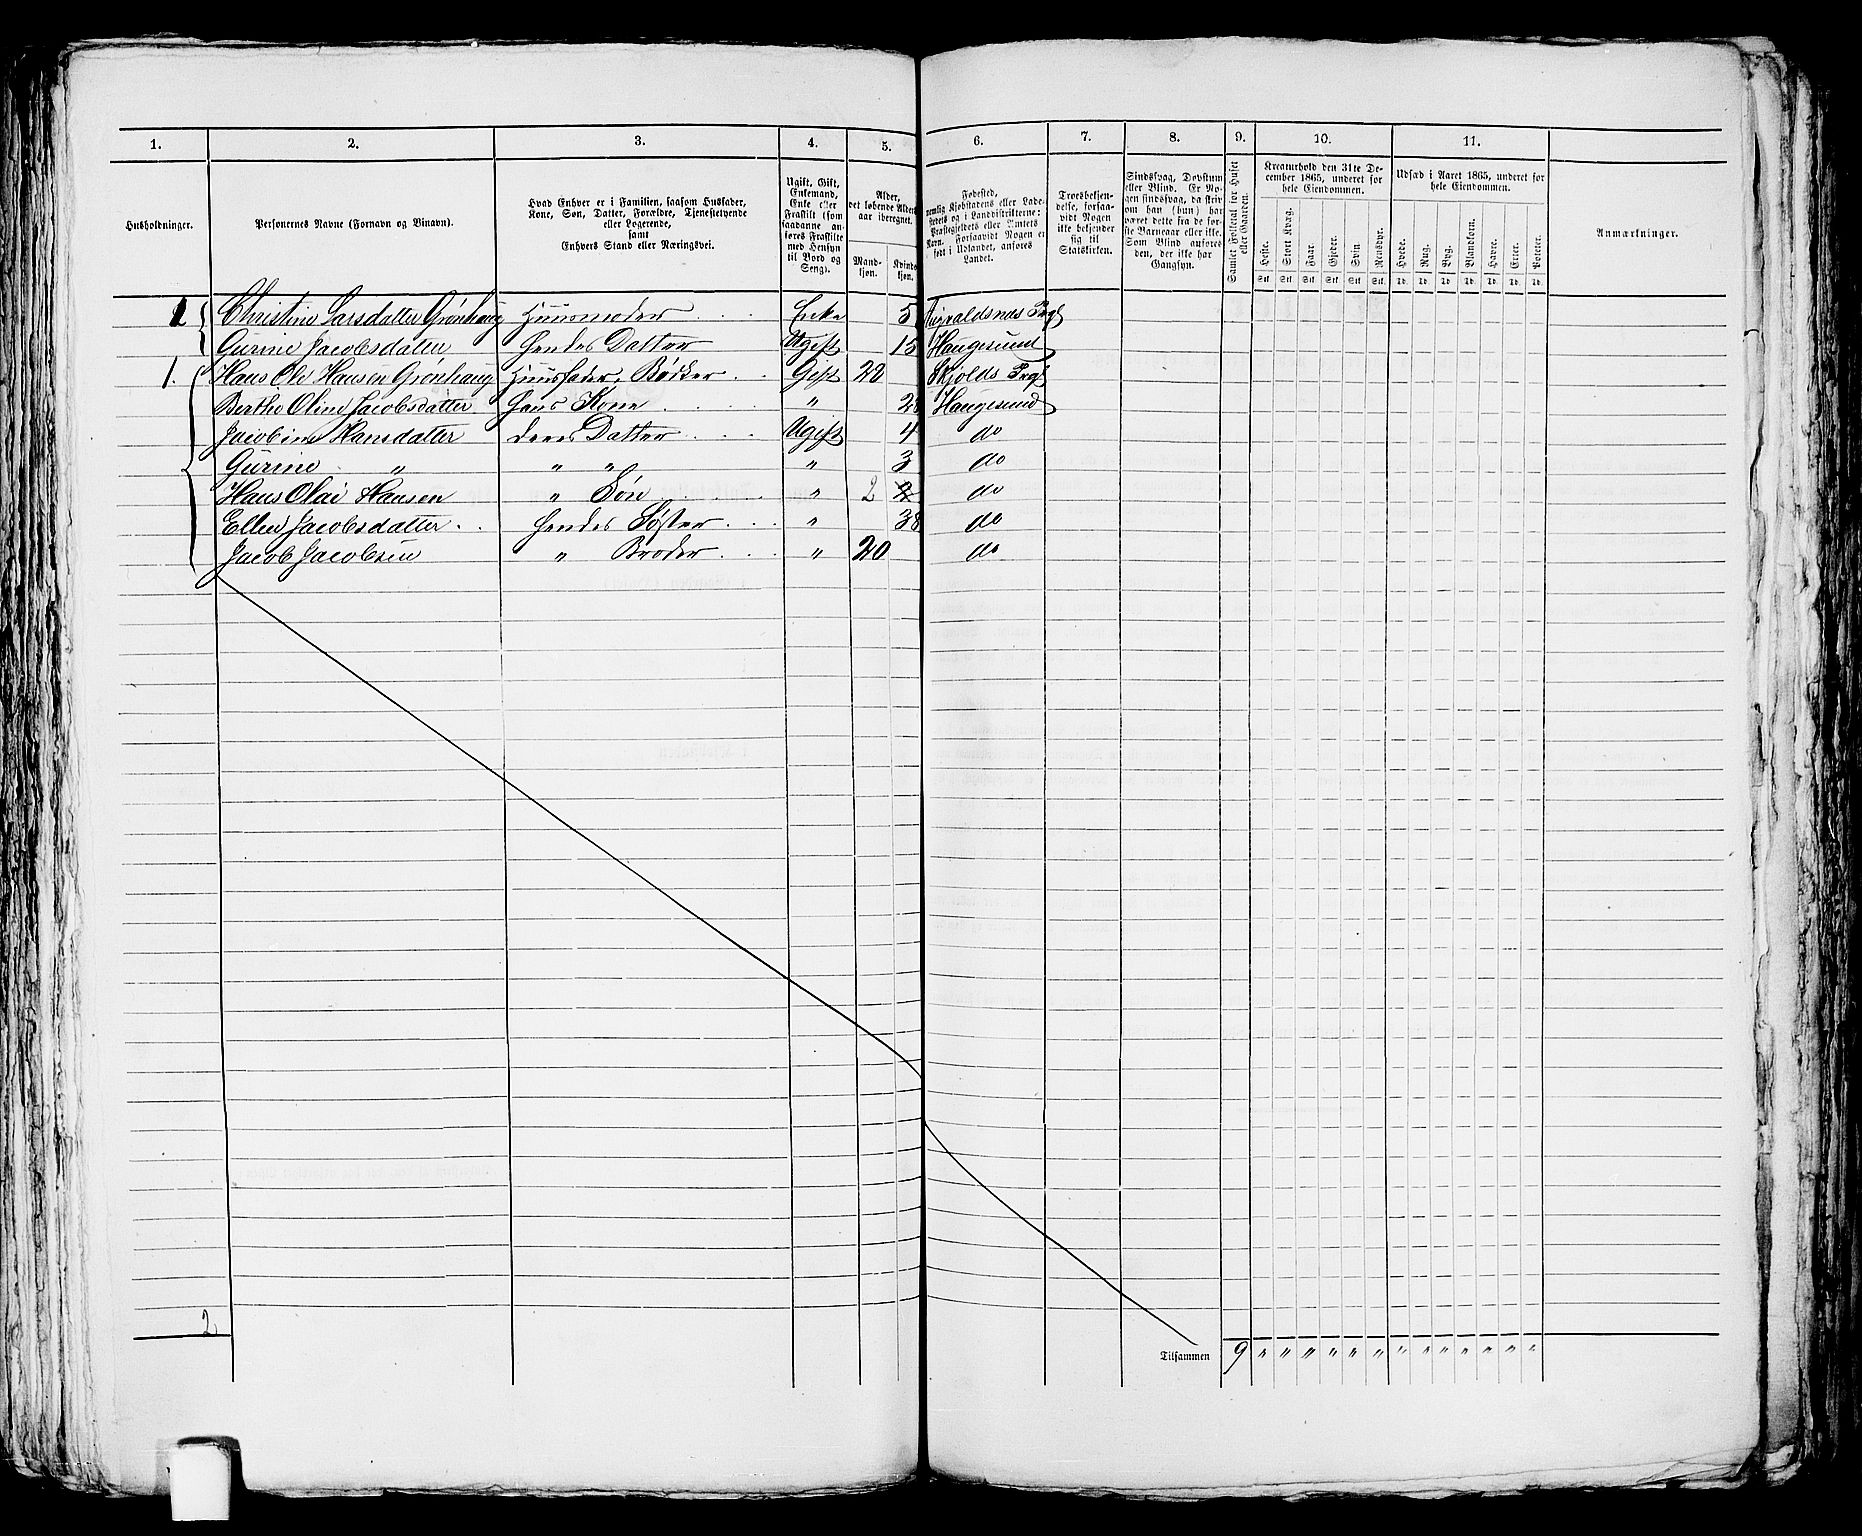 1. 2. 3. 4. 5. 6. 7. 8. 9. 10. 11.
Husholdninger.
Personernes Navne (Fornavn og Binavn).
Hvad Enhver er i Familien, saasom Husfader,
Kone, Søn, Datter, Forældre, Tjenestetyende
eller Logerende,
samt
Enhvers Stand eller Næringsvei.
Ugift, Gift,
Enkemand,
Enke eller
Fraskilt (som
saadanne an-
føres Fraskilte
med Hensyn
til Bord og
Seng).
Alder,
det løbende Alders-
aar iberegnet.
Mand-
kjøn.
Kvinde-
kjøn.
Fødested,
nemlig Kjøbstadens eller Lade-
stedets og i Landdistrikterne:
Præstegjeldets eller Amtets
Navn. Forsaavidt Nogen er
født i Udlandet, anføres
Landet.
Troesbekjen-
delse, forsaa-
vidt Nogen
ikke bekjender
sig til
Statskirken.
Sindssvag, Døvstum
eller Blind. Er No-
gen sindssvag, da skriv
om han (hun) har
været dette fra de før-
ste Barneaar eller ikke.
Som Blind anføres
den, der ikke har
Gangsyn.
Samlet Folketal for Huset
eller Gaarden.
Kreaturhold den 31te De-
cember 1865, underet for
hele Eiendommen.
Heste. Stort Kvæg. Faar. Gjeder. Svin. Rensdyr.
Stk. Stk. Stk. Stk. Stk. Stk.
Udsæd i Aaret 1865, underet for
hele Eiendommen.
Hvede. Rug. Byg. Blandkorn. Havre. Erter. Poteter.
Td. Td. Td. Td. Td. Td. Td.
Anmærkninger.
1 Christine Larsdatter Grønhaug Huusmoder Enke 5 Augvaldsnæs Prgl
Gurine Jacobsdatter hendes Datter Ugift 15 Haugesund
1. Hans Ole Hansen Grønhaug Huusfader, Bødker Gift 28 Skjolds Prgl
Berthe Oline Jacobsdatter hans Kone " 28 Haugesund
Jacobine Hansdatter deres Datter Ugift 4 do
Gurine " " " " 3 do
Hans Olai Hansen " Søn " 2 2 do
Ellen Jacobsdatter hendes Søster " 38 do
Jacob Jacobsen " Broder " 20 do
2
Tilsammen 9 " " " " " " " " " " " "